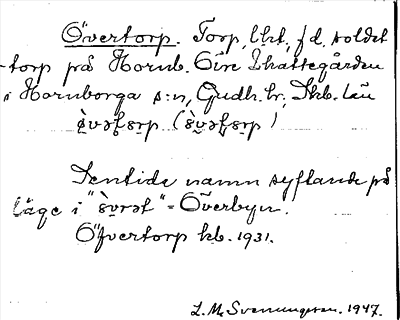 Övertorp. Torp, lht, f.d. soldat
-torp på Hornb. Övre Skattegården
i Hornborga s:n, Gudh. hr, Skb. län

Sentida namn syftande på
läge i " " = Överbyn.
Öfvertorp kb. 1931.
L. M. Svenungsson. 1947.